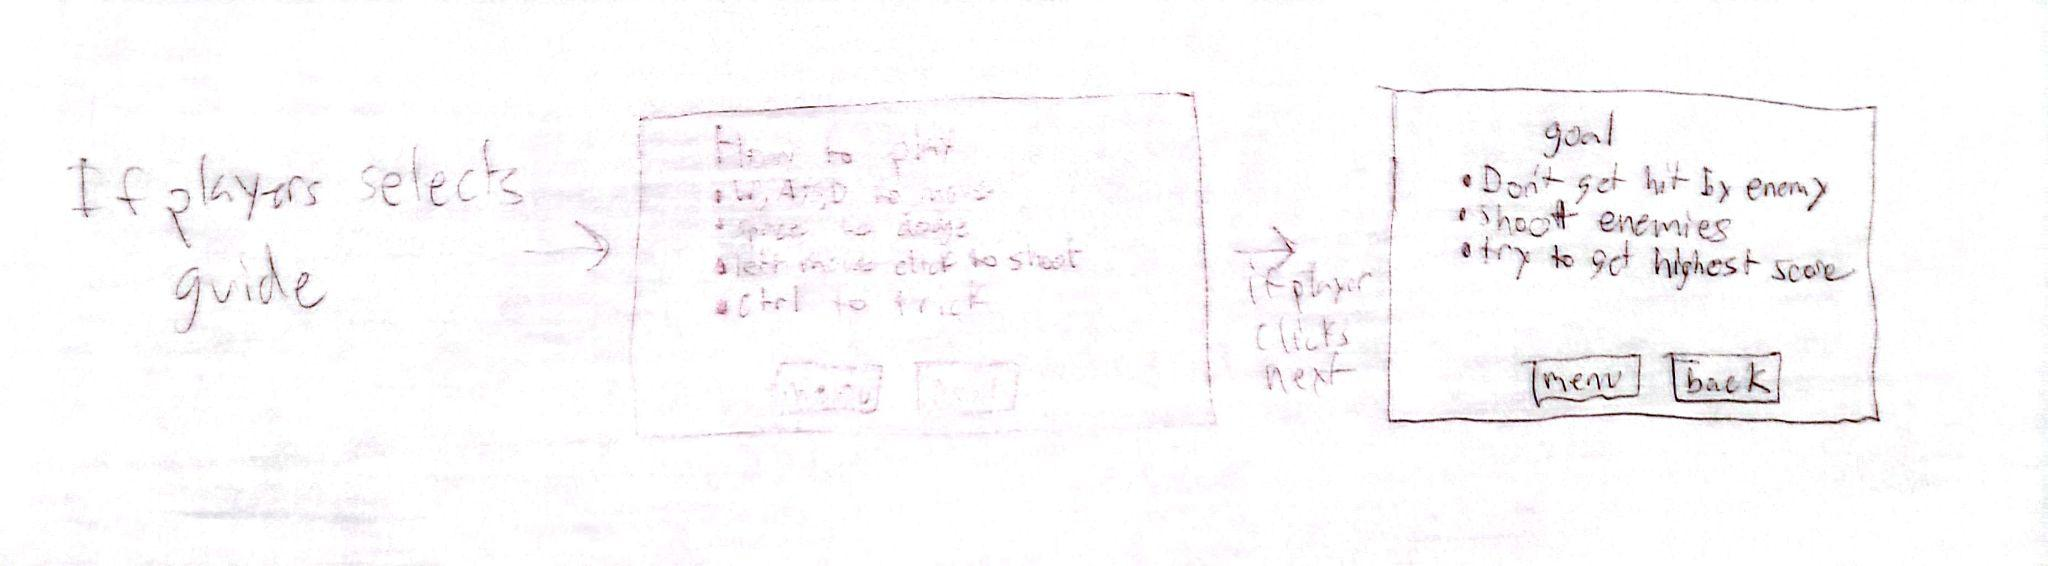 If players selects
guide
How to play
• W, A, S, D to move
• space to dodge
• left mouse click to shoot
• Ctrl to trick
menu
if player
clicks
next
goal
• Don't get hit by enemy
• shoot enemies
• try to get highest score
menu back